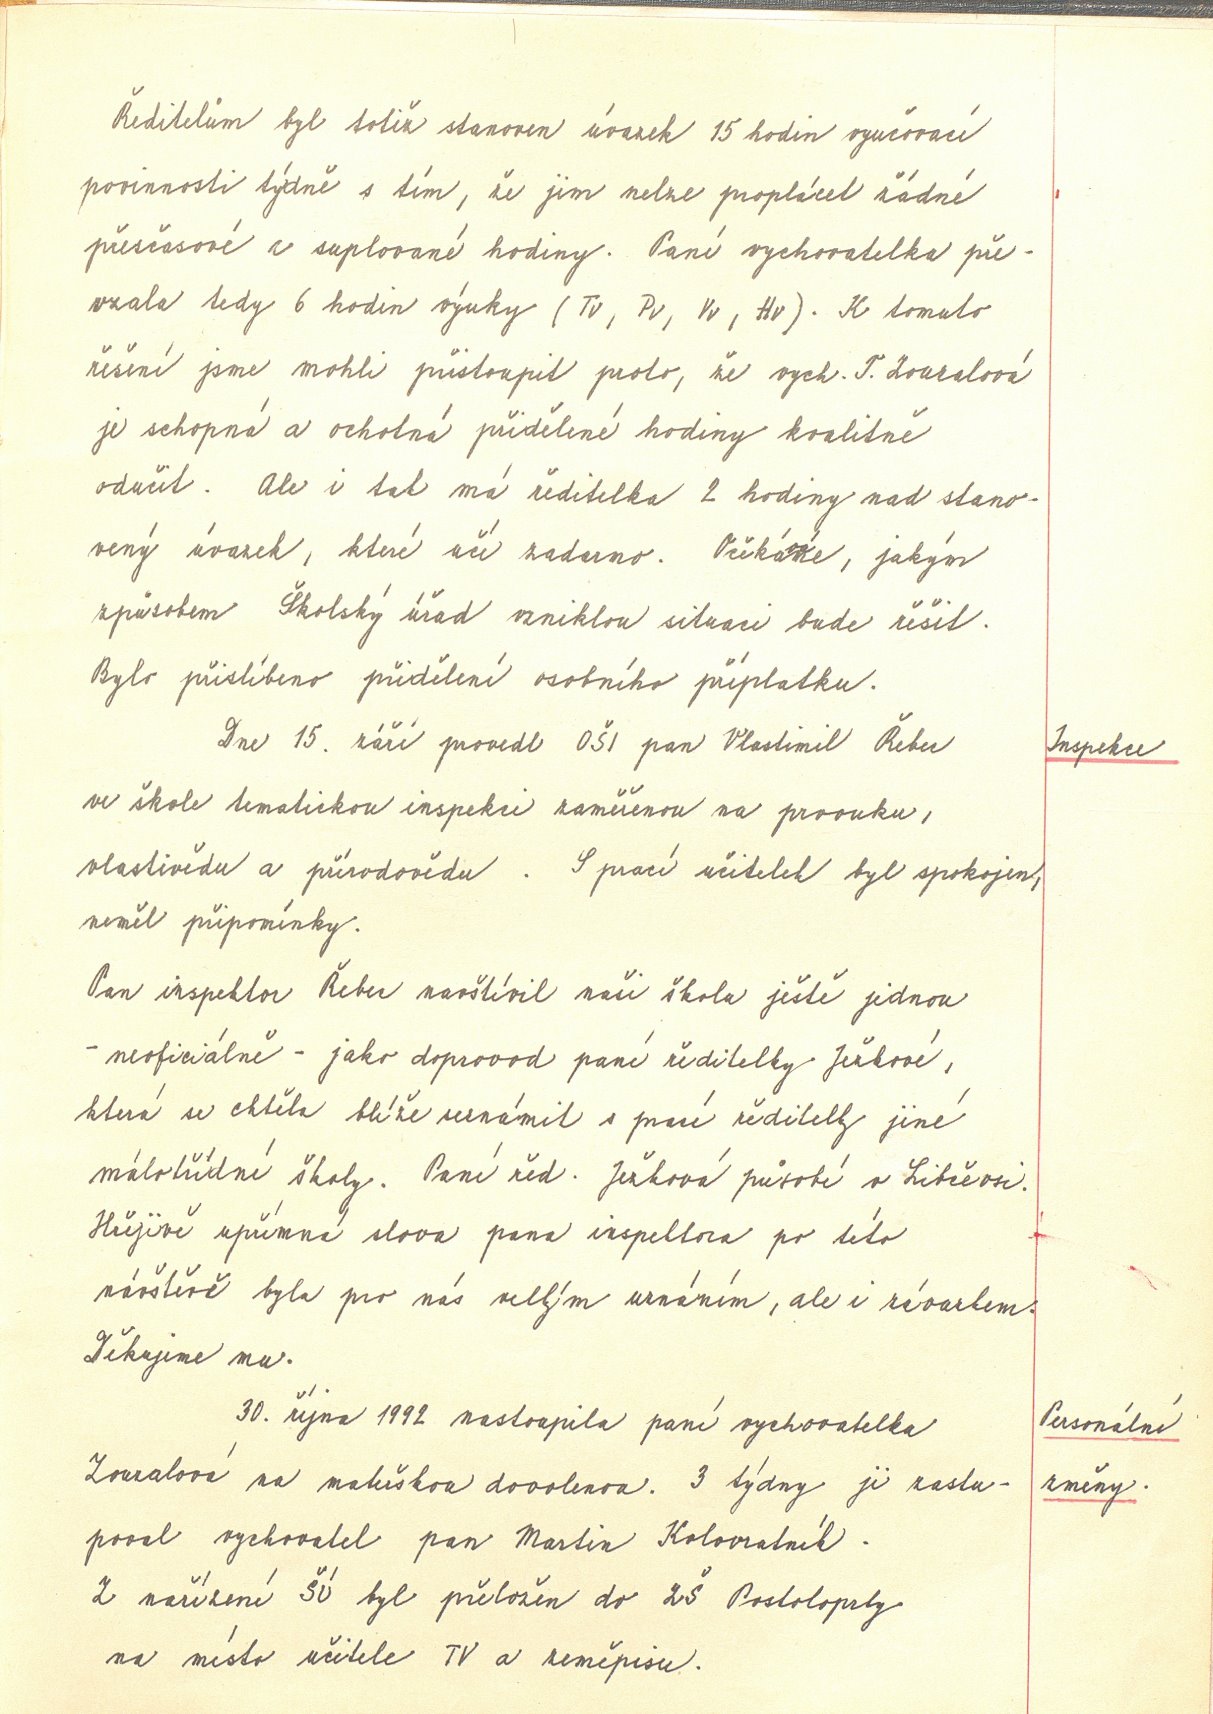 Ředitelům byl totiž stanoven úvazek 15 hodin vyučovací
povinnosti týdně s tím, že jim nelze proplácet žádné
přesčasové a suplované hodiny. Paní vychovatelka pře-
vzala tedy 6 hodin výuky (Tv, Pv, Vv, Hv). K tomuto
řešení jsme mohli přistoupit proto, že vych. T. Zouzalová
je schopná a ochotná přidělené hodiny kvalitně
odučit. Ale i tak má ředitelka 2 hodiny nad stano-
vený úvazek, které učí zadarmo. jakým
způsobem Školský úřad vzniklou situaci bude řešit.
Bylo přislíbeno přidělení osobního příplatku.
Dne 15. září provedl OŠI pan Vlastimil Řeber
Inspekce
ve škole tematickou inspekci zaměřenou na prvouku,
vlastivědu a přírodovědu. S prací učitelek byl spokojen,
neměl připomínky.
Pan inspektor Řeber navštívil naši školu ještě jednou
- neoficiálně - jako doprovod paní ředitelky Ježkové,
která se chtěla blíže seznámit s prací ředitelky jiné
málotřídní školy. Paní řed. Ježková působí v Libčevsi.
Hřejivě upřímná slova pana inspektora po této
návštěvě byla pro nás velkým uznáním, ale i závazkem.
Děkujeme mu.
30. října 1992 nastoupila paní vychovatelka
Personální
Zouzalová na mateřskou dovolenou. 3 týdny ji zastu-
změny.
poval vychovatel pan Martin Kolovratník.
Z nařízení ŠÚ byl přeložen do ZŠ Postoloprty
na místo učitele TV a zeměpisu.